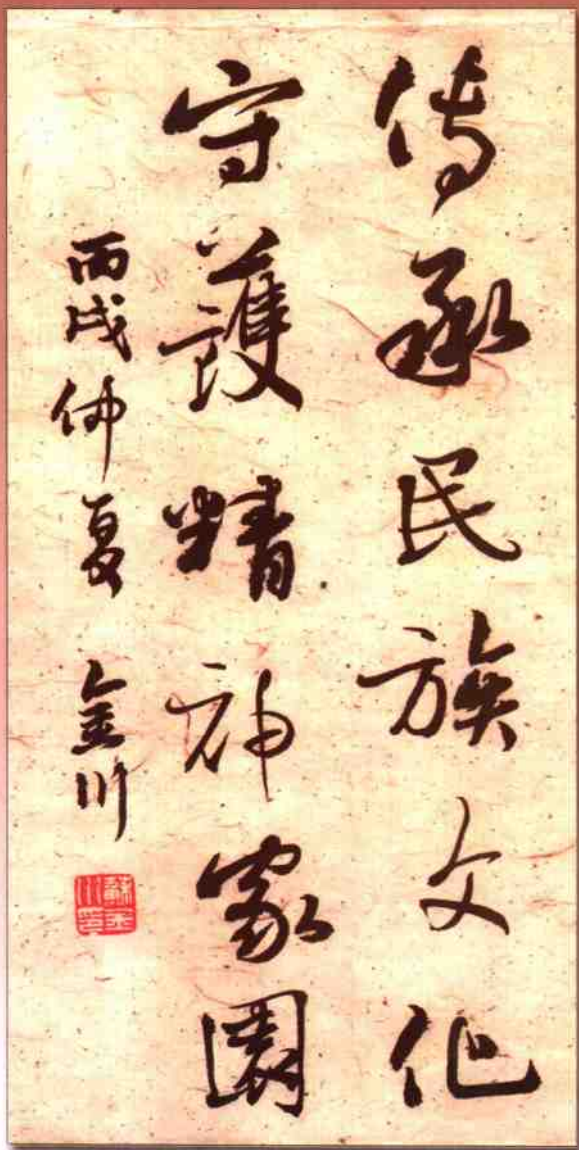 传承民族文化
守護精神家園
丙戌仲夏 金川